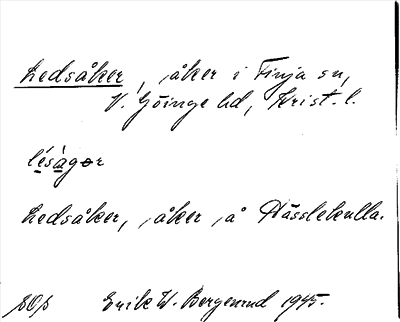 Ledsåker, åker i Finja sn,
V. Göinge hd, Krist. l.
lésàgǝr
Ledsåker, åker å Hässlekulla.
Erik W. Bergenrud 1945.